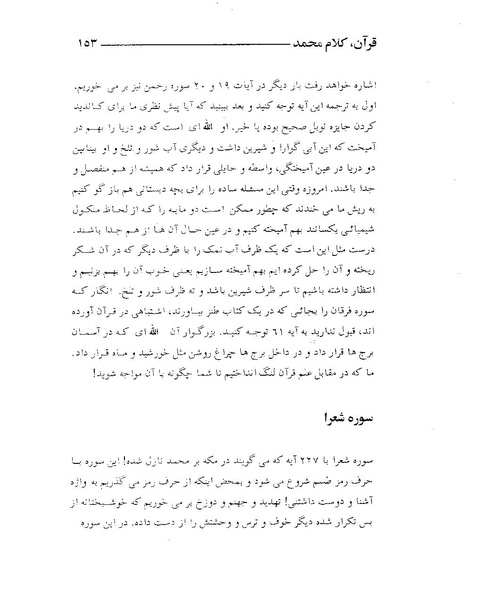 قرآن، کلام محمد ——— ۱۵۳
اشاره خواهد رفت بار دیگر در آیات ۱۹ و ۲۰ سوره رحمن نیز بر می خوریم.
اول به ترجمه این آیه توجه کنید و بعد ببینید که آیا پیش نظری ما برای کاندید
کردن جایزه نوبل صحیح بوده یا خیر. او الله ای است که دو دریا را بهم در
آمیخت که این آبی گوارا و شیرین داشت و دیگری آب شور و تلخ و او بینابین
دو دریا در عین آمیختگی، واسطه و حایلی قرار داد که همیشه از هم منفصل و
جدا باشند. امروزه وقتی این مسئله ساده را برای بچه دبستانی هم باز گو کنیم
به ریش ما می خندند که چطور ممکن است دو مایه را که از لحاظ ملکول
شیمیائی یکسانند بهم آمیخته کنیم و در عین حال آن ها از هم جدا باشند.
درست مثل این است که یک ظرف آب نمک را با ظرف دیگر که در آن شکر
ریخته و آن را حل کرده ایم بهم آمیخته سازیم یعنی خوب آن را بهم بزنیم و
انتظار داشته باشیم تا سر ظرف شیرین باشد و ته ظرف شور و تلخ. انگار که
سوره فرقان را بجائی که در یک کتاب طنز بیاورند، اشتباهی در قرآن آورده
اند، قبول ندارید به آیه ۶۱ توجه کنید. بزرگوار آن الله ای که در آسمان
برج ها قرار داد و در داخل برج ها چراغ روشن مثل خورشید و ماه قرار داد.
ما که در مقابل علم قرآن لنگ انداختیم تا شما چگونه با آن مواجه شوید!
سوره شعرا
سوره شعرا با ۲۲۷ آیه که می گویند در مکه بر محمد نازل شده! این سوره با
حرف رمز طسم شروع می شود و بمحض اینکه از حرف رمز می گذریم به واژه
آشنا و دوست داشتنی! تهدید و جهنم و دوزخ بر می خوریم که خوشبختانه از
بس تکرار شده دیگر خوف و ترس و وحشتش را از دست داده. در این سوره